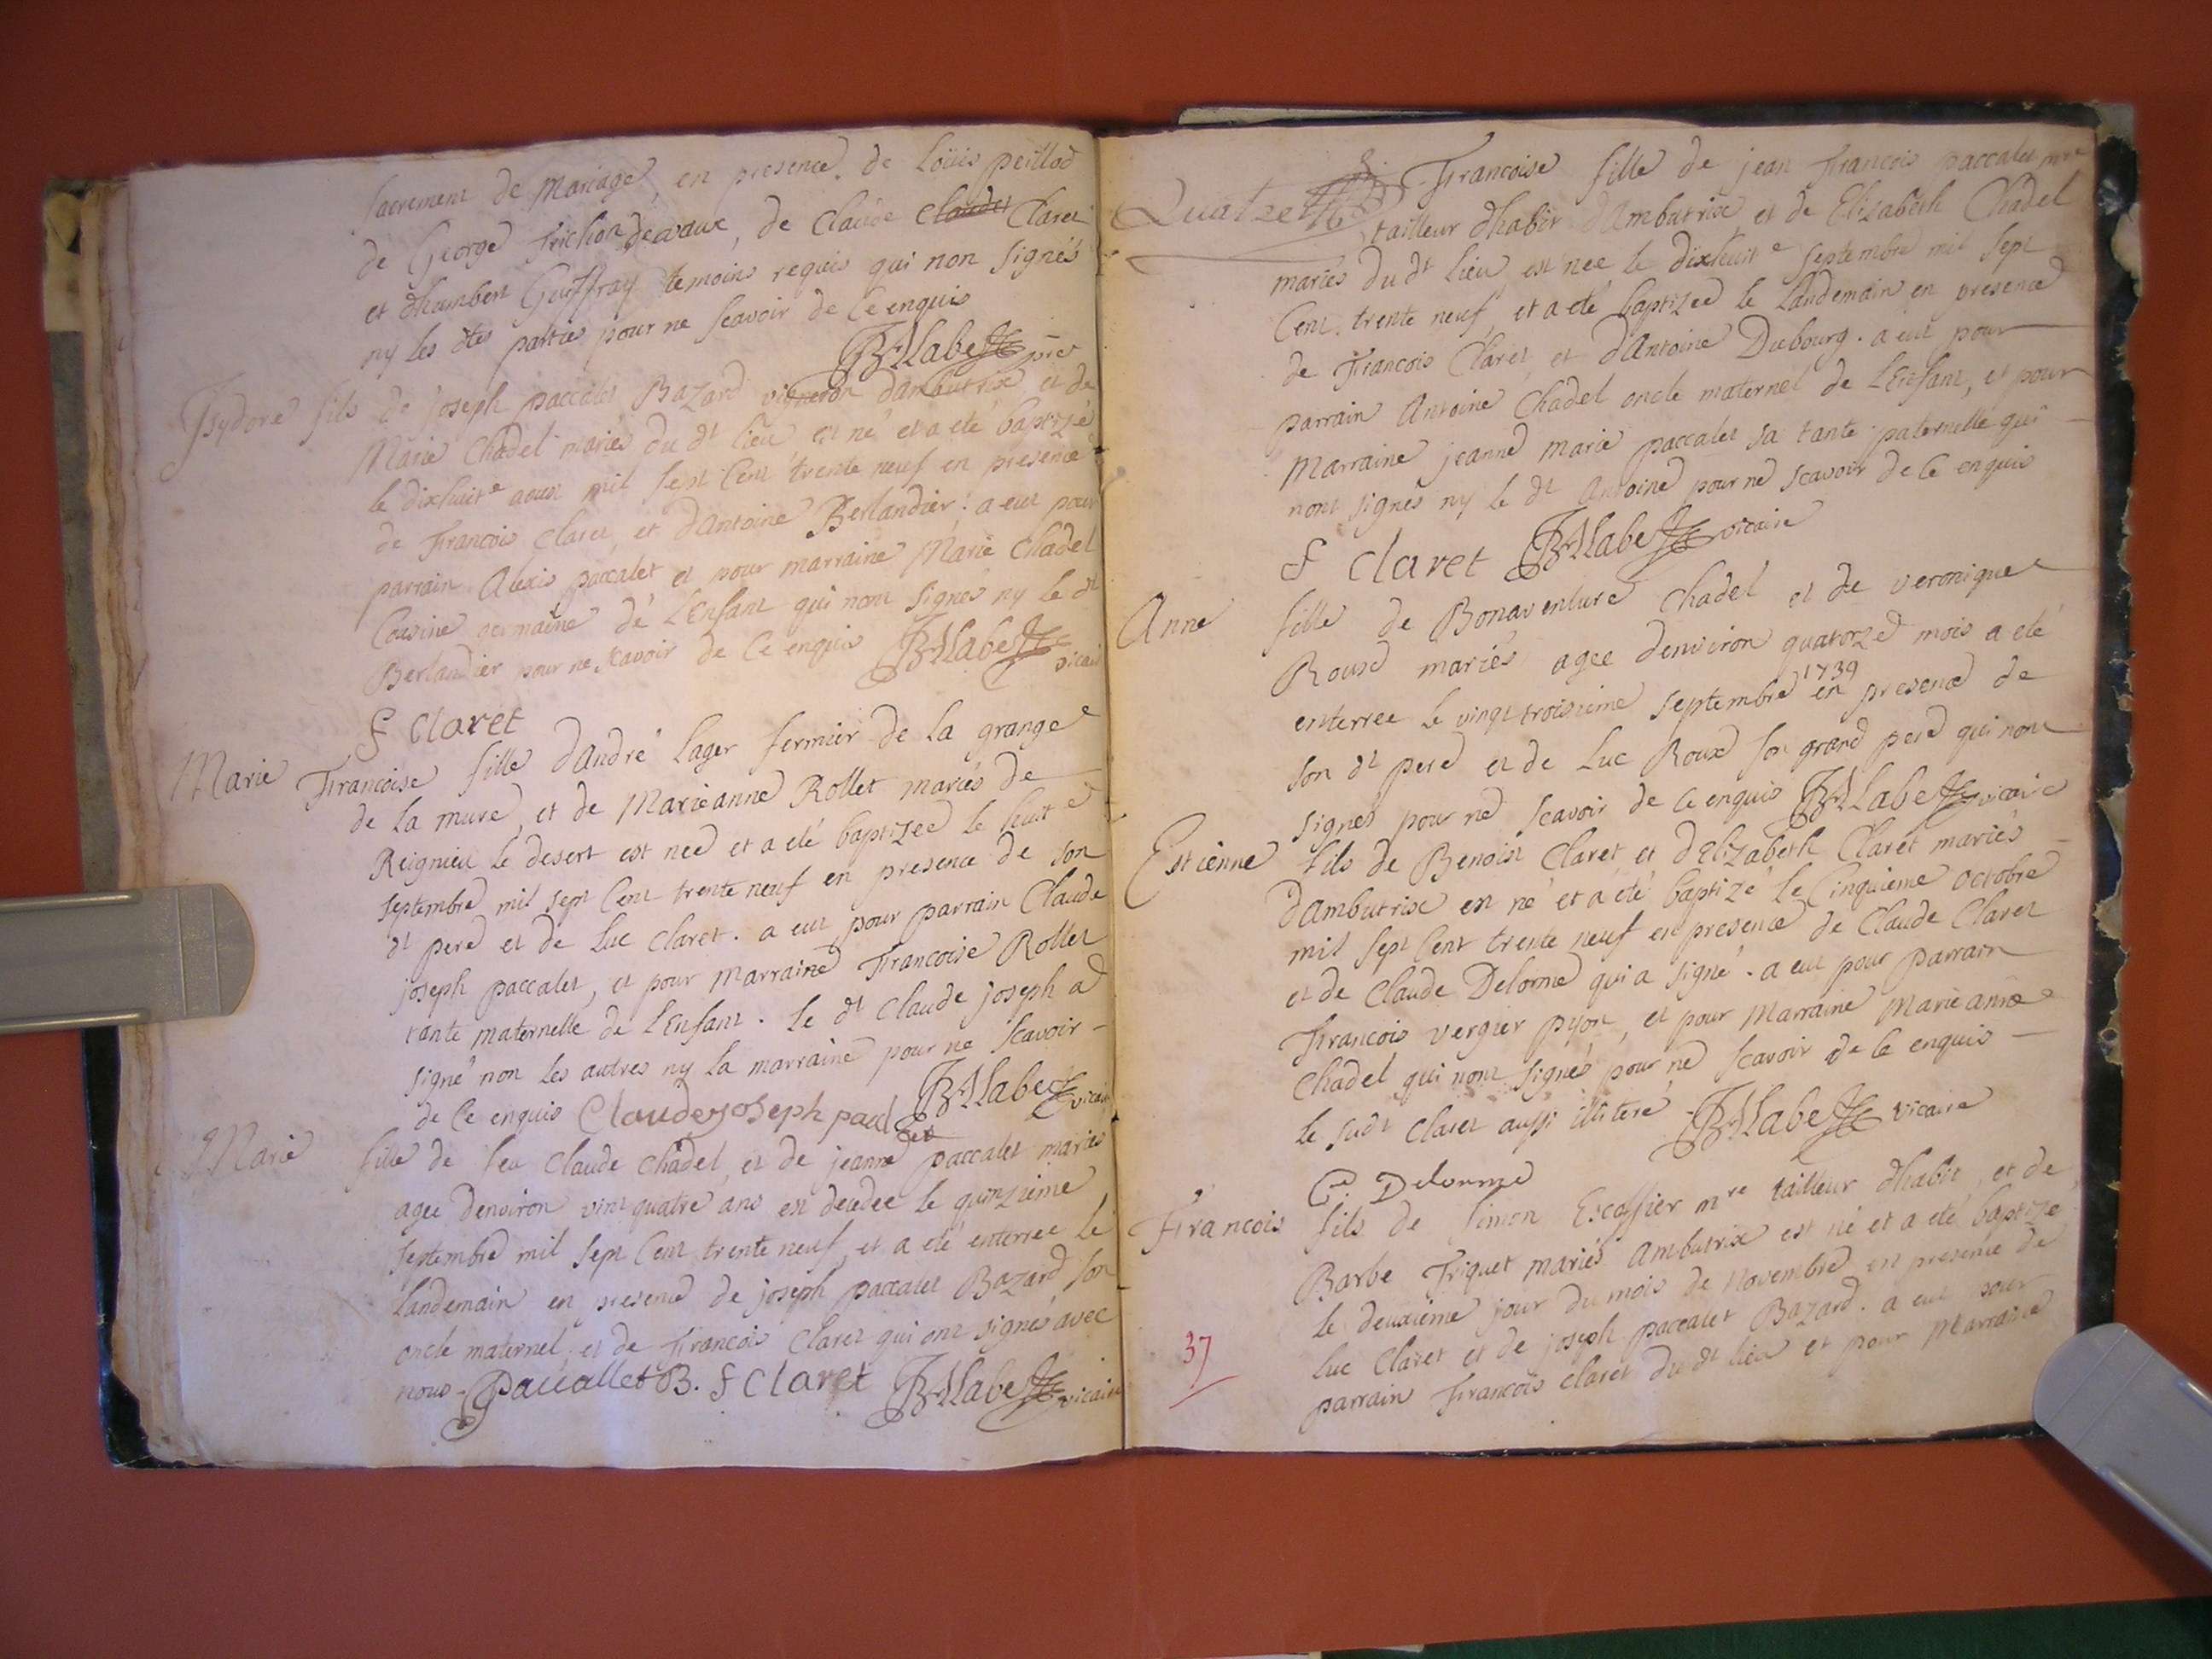 sacrement de Mariage, en presence de Loüis peillod
de George frichon devaux, de Claude Claudet Claret
et dhumbert Geoffray temoins requis qui non signés
ny les dtes parties pour ne scavoir de ce enquis
BAlabe ptre
Isydore fils de joseph paccalet Bazard vigneron dambutrix et de
Marie Chadel mariés du dt lieu est né et a eté baptizé
le dixhuite aoust mil sept cent trente neuf en presence
de francois claret, et dantoine Berlandier : a eut pour
parrain Alexis paccalet et pour marraine Marie Chadel
Cousine germaine de LEnfant qui nont signés ny le dt
Berlandier pour ne scavoir de ce enquis BAlabe vicaire
f claret
Marie francoise fille dandré Lager fermier de la grange
de la mure, et de Marieanne Rollet mariés de
Reignieu le desert est nee et a eté baptizee le huite
septembre mil sept cent trente neuf en presence de son
dt pere et de Luc claret. a eut pour parrain Claude
joseph paccalet, et pour marraine francoise Rollet
tante maternelle de LEnfant. le dt claude joseph a
signé non les autres ny la marraine pour ne scavoir
de ce enquis Claudejoseph paclet BAlabe vicaire
Marie fille de feu claude chadel, et de jeanne paccalet mariés
agee denviron vint quatre ans est decedee le quinzieme
septembre mil sept cent trente neuf, et a eté enterree le
landemain en presence de joseph paccalet Bazard son
oncle maternel et de francois claret qui ont signés avec
nous. paccallet B. f claret BAlabe vicaire
Quatre francoise fille de jean francois paccalet mre
tailleur dhabit dAmbutrix et de Elizabeth Chadel
mariés du dt lieu est nee le dixhuite septembre mil sept
cent trente neuf, et a eté baptizee le landemain en presence
de francois claret, et dAntoine Dubourg. a eut pour
parrain Antoine Chadel oncle maternel de LEnfant, et pour
marraine jeanne marie paccalet sa tante paternelle qui
nont signés ny le dt Antoine pour ne scavoir de ce enquis
f claret BAlabe vicaire
Anne fille de Bonaventure Chadel et de veronique
Roux mariés agee denviron quatorze mois a eté
enterree le vingt troisieme septembre 1739 en presence de
son dt pere et de Luc Roux son grand pere qui nont
signés pour ne scavoir de ce enquis BAlabe vicaire
Estienne fils de Benoist Claret et dElizabeth Claret mariés
dambutrix est né et a eté baptizé le Cinquieme octobre
mil sept cent trente neuf en presence de Claude Claret
et de Claude Delorme qui a signé. a eut pour parrain
francois vergier pyon, et pour marraine Marieanne
Chadel qui nont signés pour ne scavoir de ce enquis
le sudt claret aussi illiteré. BAlabe vicaire
C. Delorme
francois fils de simon Escoffier mre tailleur dhabit, et de
Barbe friquet mariés Ambutrix est né et a eté baptizé
le deuxieme jour du mois de novembre en presence de
luc Claret et de joseph paccalet Bazard. a eut pour
37 parrain francois claret du dt lieu et pour marraine